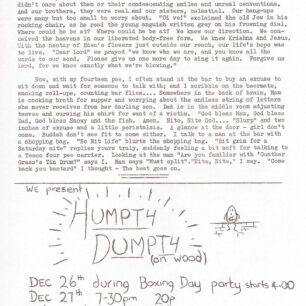 didn't care about them or their condescending smiles and unreal conventions.
And brothers, they were real and our sisters, celestial. Our hang-ups
were many but too small to worry about. "Oi vei" exclaimed the old Jew in his
rocking chair, as he read the young anguish written grey on his frowning dial.
Where could he be at? Where could be be at? We know our direction. We con-
ceived the heavens in our liberated body-free form. We know Krishna and Jesus.
With the nectar of Eden's flowers just outside our reach, our life's hope was
to live. "Dear Lord" we prayed "we know who we are, and you know all the
words to our song. Please give us one more day to sing it again. Forgive us
Lord, for we know exactly what we're blowing."
Now, with my fourteen pee, I often stand at the bar to buy an excuse to
sit down and wait for someone to talk with; and I scribble on the beermats,
smoking roll-ups, counting bar flies.... Somewhere in the back of brain, Mum
is cooking broth for supper and worrying about the endless string of letters
she never receives from her darling son. Dad is in the middle room adjusting
tevees and cursing his shirt for want of a victim. "God bless Mum, God bless
Dad, God bless Snowy and the fish. Amen. Nite, Nite God...." "Slurp" and two
inches of excuse and a little peristalsis. A glance at the door - girl don't
come. Buddah don't see fit to come either. I talk to a man at the bar with
a shopping bag. "No Nit Life" blurts the shopping bag. "Bit grim for a
Saturday nite" replies yours truly, suddenly feeling a bit soft for talking to
a Tesco four pee carrier. Looking at the man "Are you familiar with 'Gunther
Grass's Tin Drum?" says I. Man says "Must split". "Nite, Nite," I say. "Come
back you bastard" I thought - The beat goes on.
WE present
HUMPTY
DUMPTY
(on wood)
DEC 26th during Boxing Day party starts 4.00
DEC 27th 7-30pm 20p